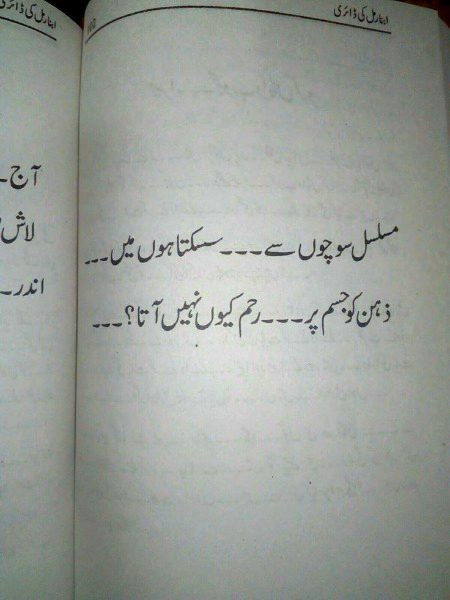 ابنارمل کی ڈائری
مسلسل سوچوں سے --- سسکتا ہوں میں ---
ذہن کو جسم پر --- رحم کیوں نہیں آتا؟ ---
کی ڈائری
آج -
لاش
اندر -